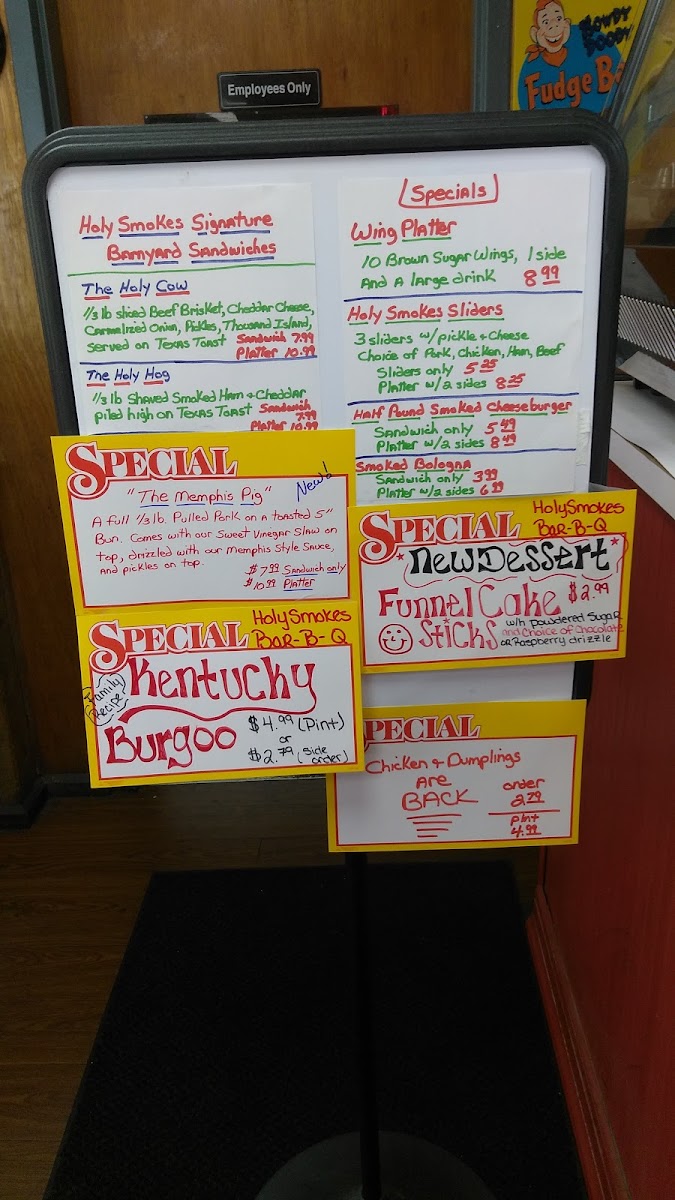 Employees Only
HOWDY
DOODY
Fudge Ba
Holy Smokes Signature
Barnyard Sandwiches
The Holy Cow
1/3 lb sliced Beef Brisket, Cheddar Cheese,
Carmelized Onion, Pickles, Thousand Island,
Served on Texas Toast Sandwich 7.99
Platter 10.99
The Holy Hog
1/3 lb Shaved Smoked Ham + Cheddar
piled high on Texas Toast Sandwich
7.99
Platter 10.99
Specials
Wing Platter
10 Brown Sugar Wings, 1 side
And a large drink 8.99
Holy Smokes Sliders
3 sliders w/ pickle + Cheese
Choice of Pork, Chicken, Ham, Beef
Sliders only 5.25
Platter w/2 sides 8.25
Half Pound Smoked Cheeseburger
Sandwich only 5.49
Platter w/2 sides 8.49
Smoked Bologna
Sandwich only 3.99
Platter w/2 sides 6.99
SPECIAL
"The Memphis Pig" New!
A full 1/3 lb. Pulled Pork on a toasted 5"
Bun. Comes with our Sweet Vinegar Slaw on
top, drizzled with our Memphis Style Sauce,
and pickles on top.
$7.99 Sandwich only
$10.99 Platter
SPECIAL HolySmokes
BAR-B-Q
*New Dessert*
Funnel Cake $2.99
Sticks
with powdered Sugar
and choice of Chocolate
or Raspberry drizzle
SPECIAL HolySmokes
BAR-B-Q
Family
Recipe
Kentucky
Burgoo
$4.99 (Pint)
or
$2.79 (side
order)
SPECIAL
Chicken + Dumplings
Are
BACK
order
2.79
pint
4.99